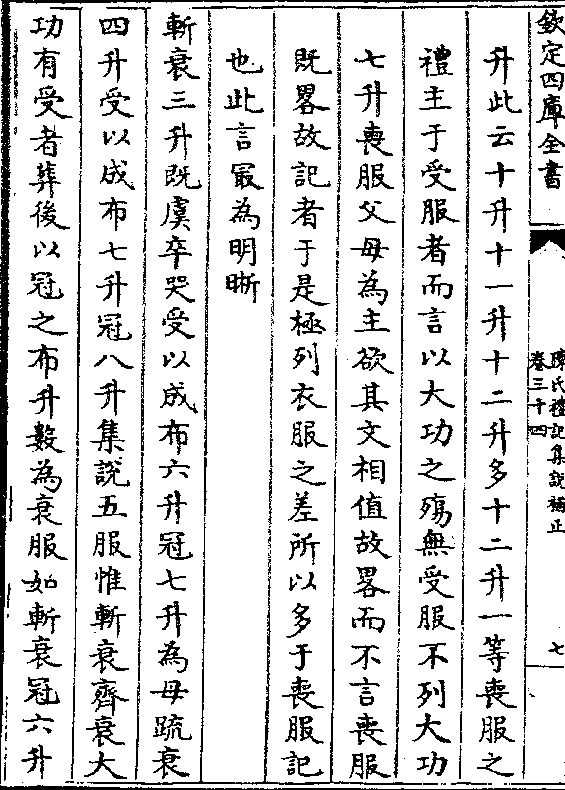 欽定四庫全書
陳氏禮記集說補正
卷三十四
七
升此云十升十一升十二升多十二升一等喪服之
禮主于受服者而言以大功之殤無受服不列大功
七升喪服父母為主欲其文相值故畧而不言喪服
既畧故記者于是極列衣服之差所以多于喪服記
也此言最為明晰
斬衰三升既虞卒哭受以成布六升冠七升為母疏衰
四升受以成布七升冠八升集說五服惟斬衰齊衰大
功有受者葬後以冠之布升數為衰服如斬衰冠六升